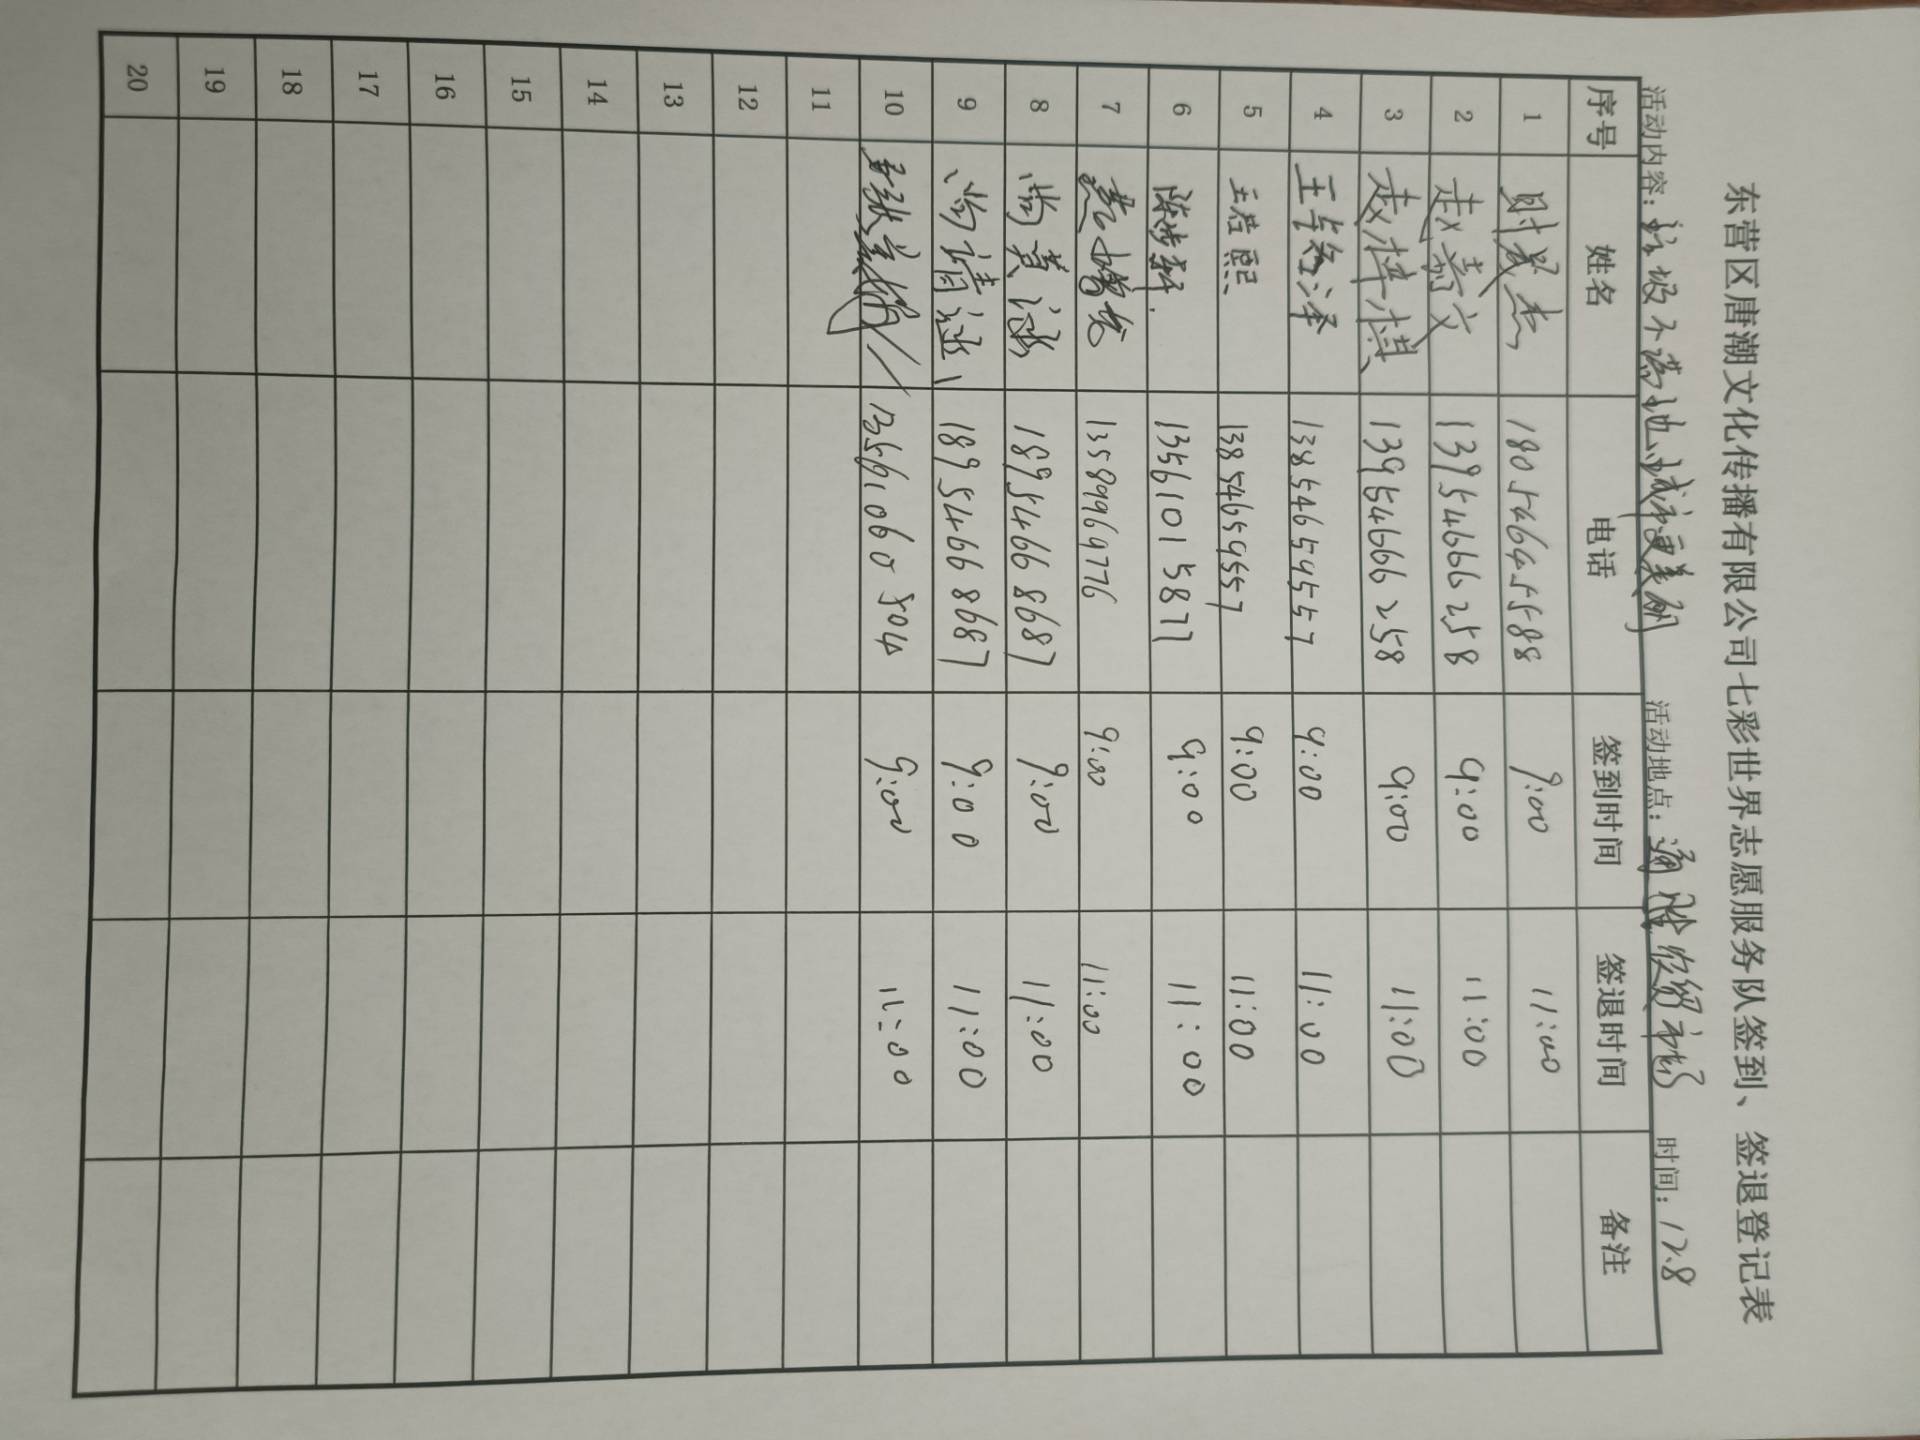 东营区唐潮文化传播有限公司七彩世界志愿服务队签到、签退登记表
活动内容：垃圾不落地 城市更美丽 活动地点： 时间：12.8
序号 姓名 电话 签到时间 签退时间 备注
1 18054645588 9:00 11:00
2 13954666258 9:00 11:00
3 赵梓棋 13954666258 9:00 11:00
4 王泽 13854659557 9:00 11:00
5 王若熙 13854659557 9:00 11:00
6 13561015877 9:00 11:00
7 13589969776 9:00 11:00
8 尚涵 18954668687 9:00 11:00
9 尚清涵 18954668687 9:00 11:00
10 9:00 11:00
11
12
13
14
15
16
17
18
19
20